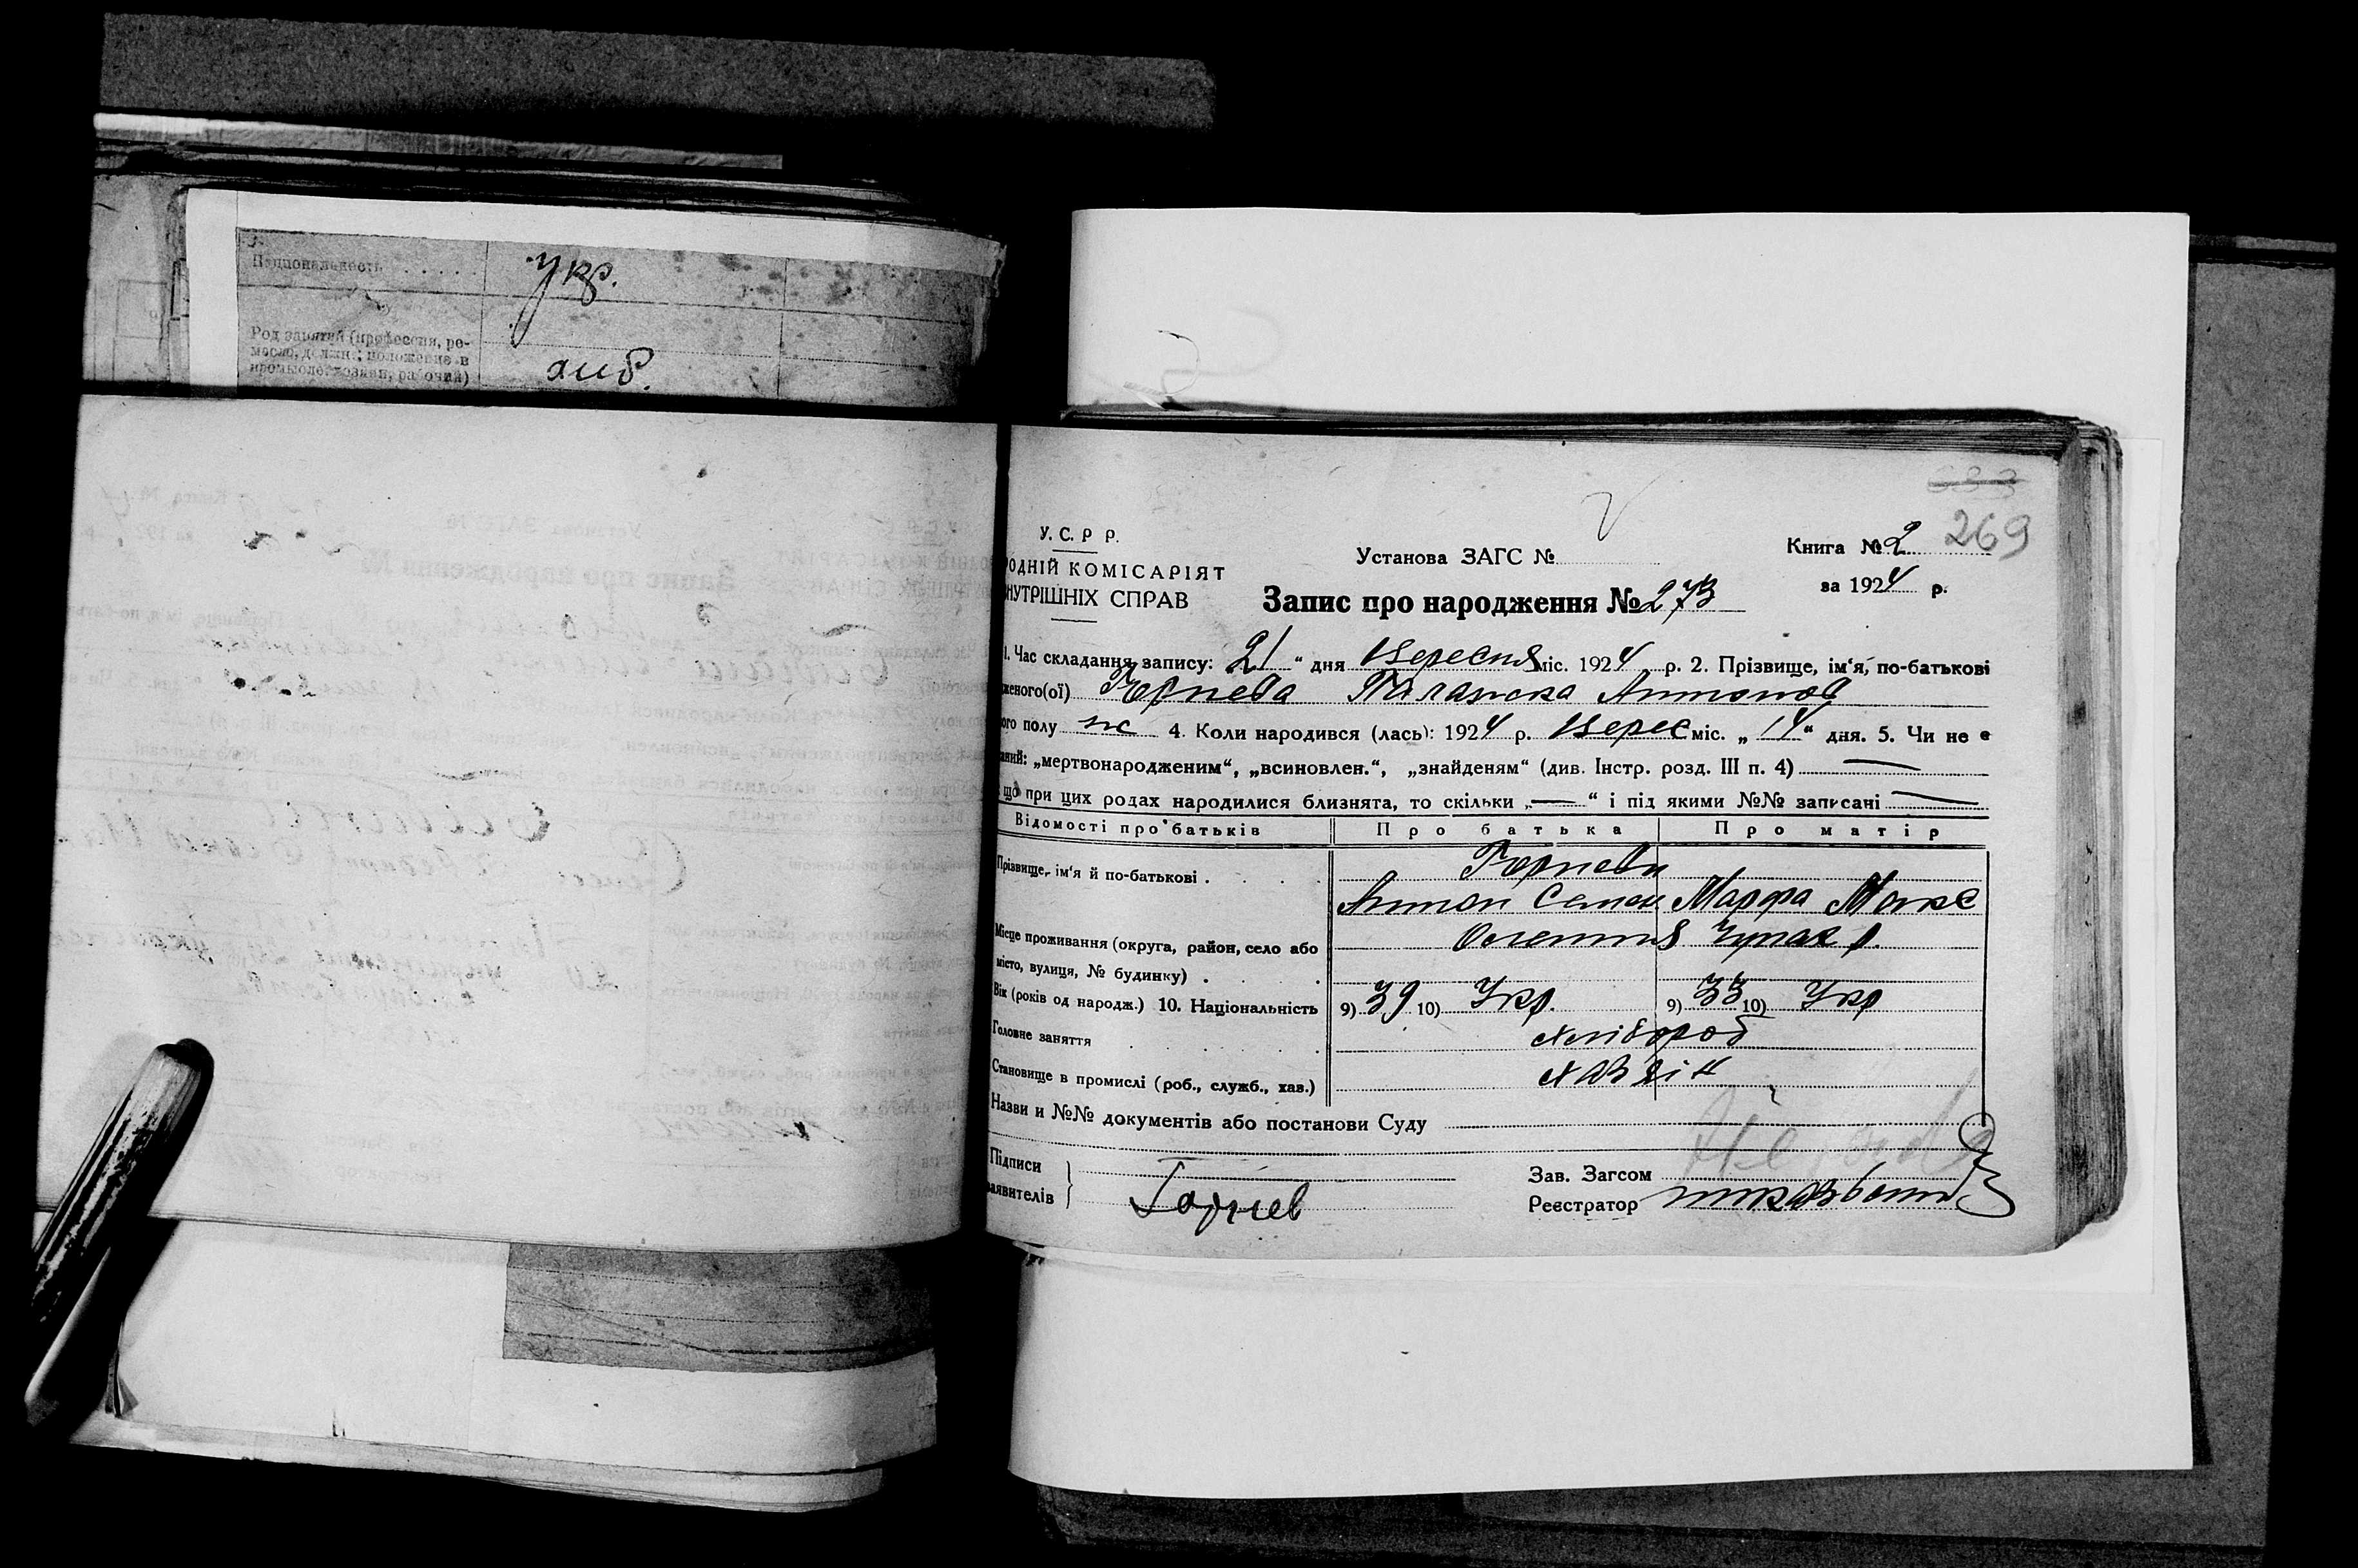 Национальность . . . . . укр.
Род занятий (профессия, ре-
месло, должн.; положение в
промысле: хозяин, рабочий) хлб.
269
У. С. Р. Р.
Установа ЗАГС №
Книга № 2
РОДНІЙ КОМІСАРІЯТ
НУТРІШНІХ СПРАВ
за 1924 р.
Запис про народження № 273
1. Час складання запису: 21 " дня Вересня міс. 1924 р. 2. Прізвище, ім'я, по-батькові
женого(ої) Горнева Палажка Антонов
ого полу ж 4. Коли народився (лась): 1924 р. Верес міс. „ 14 " дня. 5. Чи не є
аний: „мертвонародженим", „всиновлен.", „знайденям" (див. Інстр. розд. III п. 4) —
що при цих родах народилися близнята, то скільки „ — " і під якими №№ записані —
Відомості про батьків Про батька Про матір
Прізвище, ім'я й по-батькові . Горневи
Антон Семен Марфа Макс
Місце проживання (округа, район, село або
місто, вулиця, № будинку) .
Вік (років од народж.) 10. Національність 9) 39 10) Укр. 9) 33 10) Укр
Головне заняття хлібороб
Становище в промислі (роб., служб., хав.) хазяїн
Назви и №№ документів або постанови Суду
Підписи
заявителів Горнев
Зав. Загсом
Реєстратор